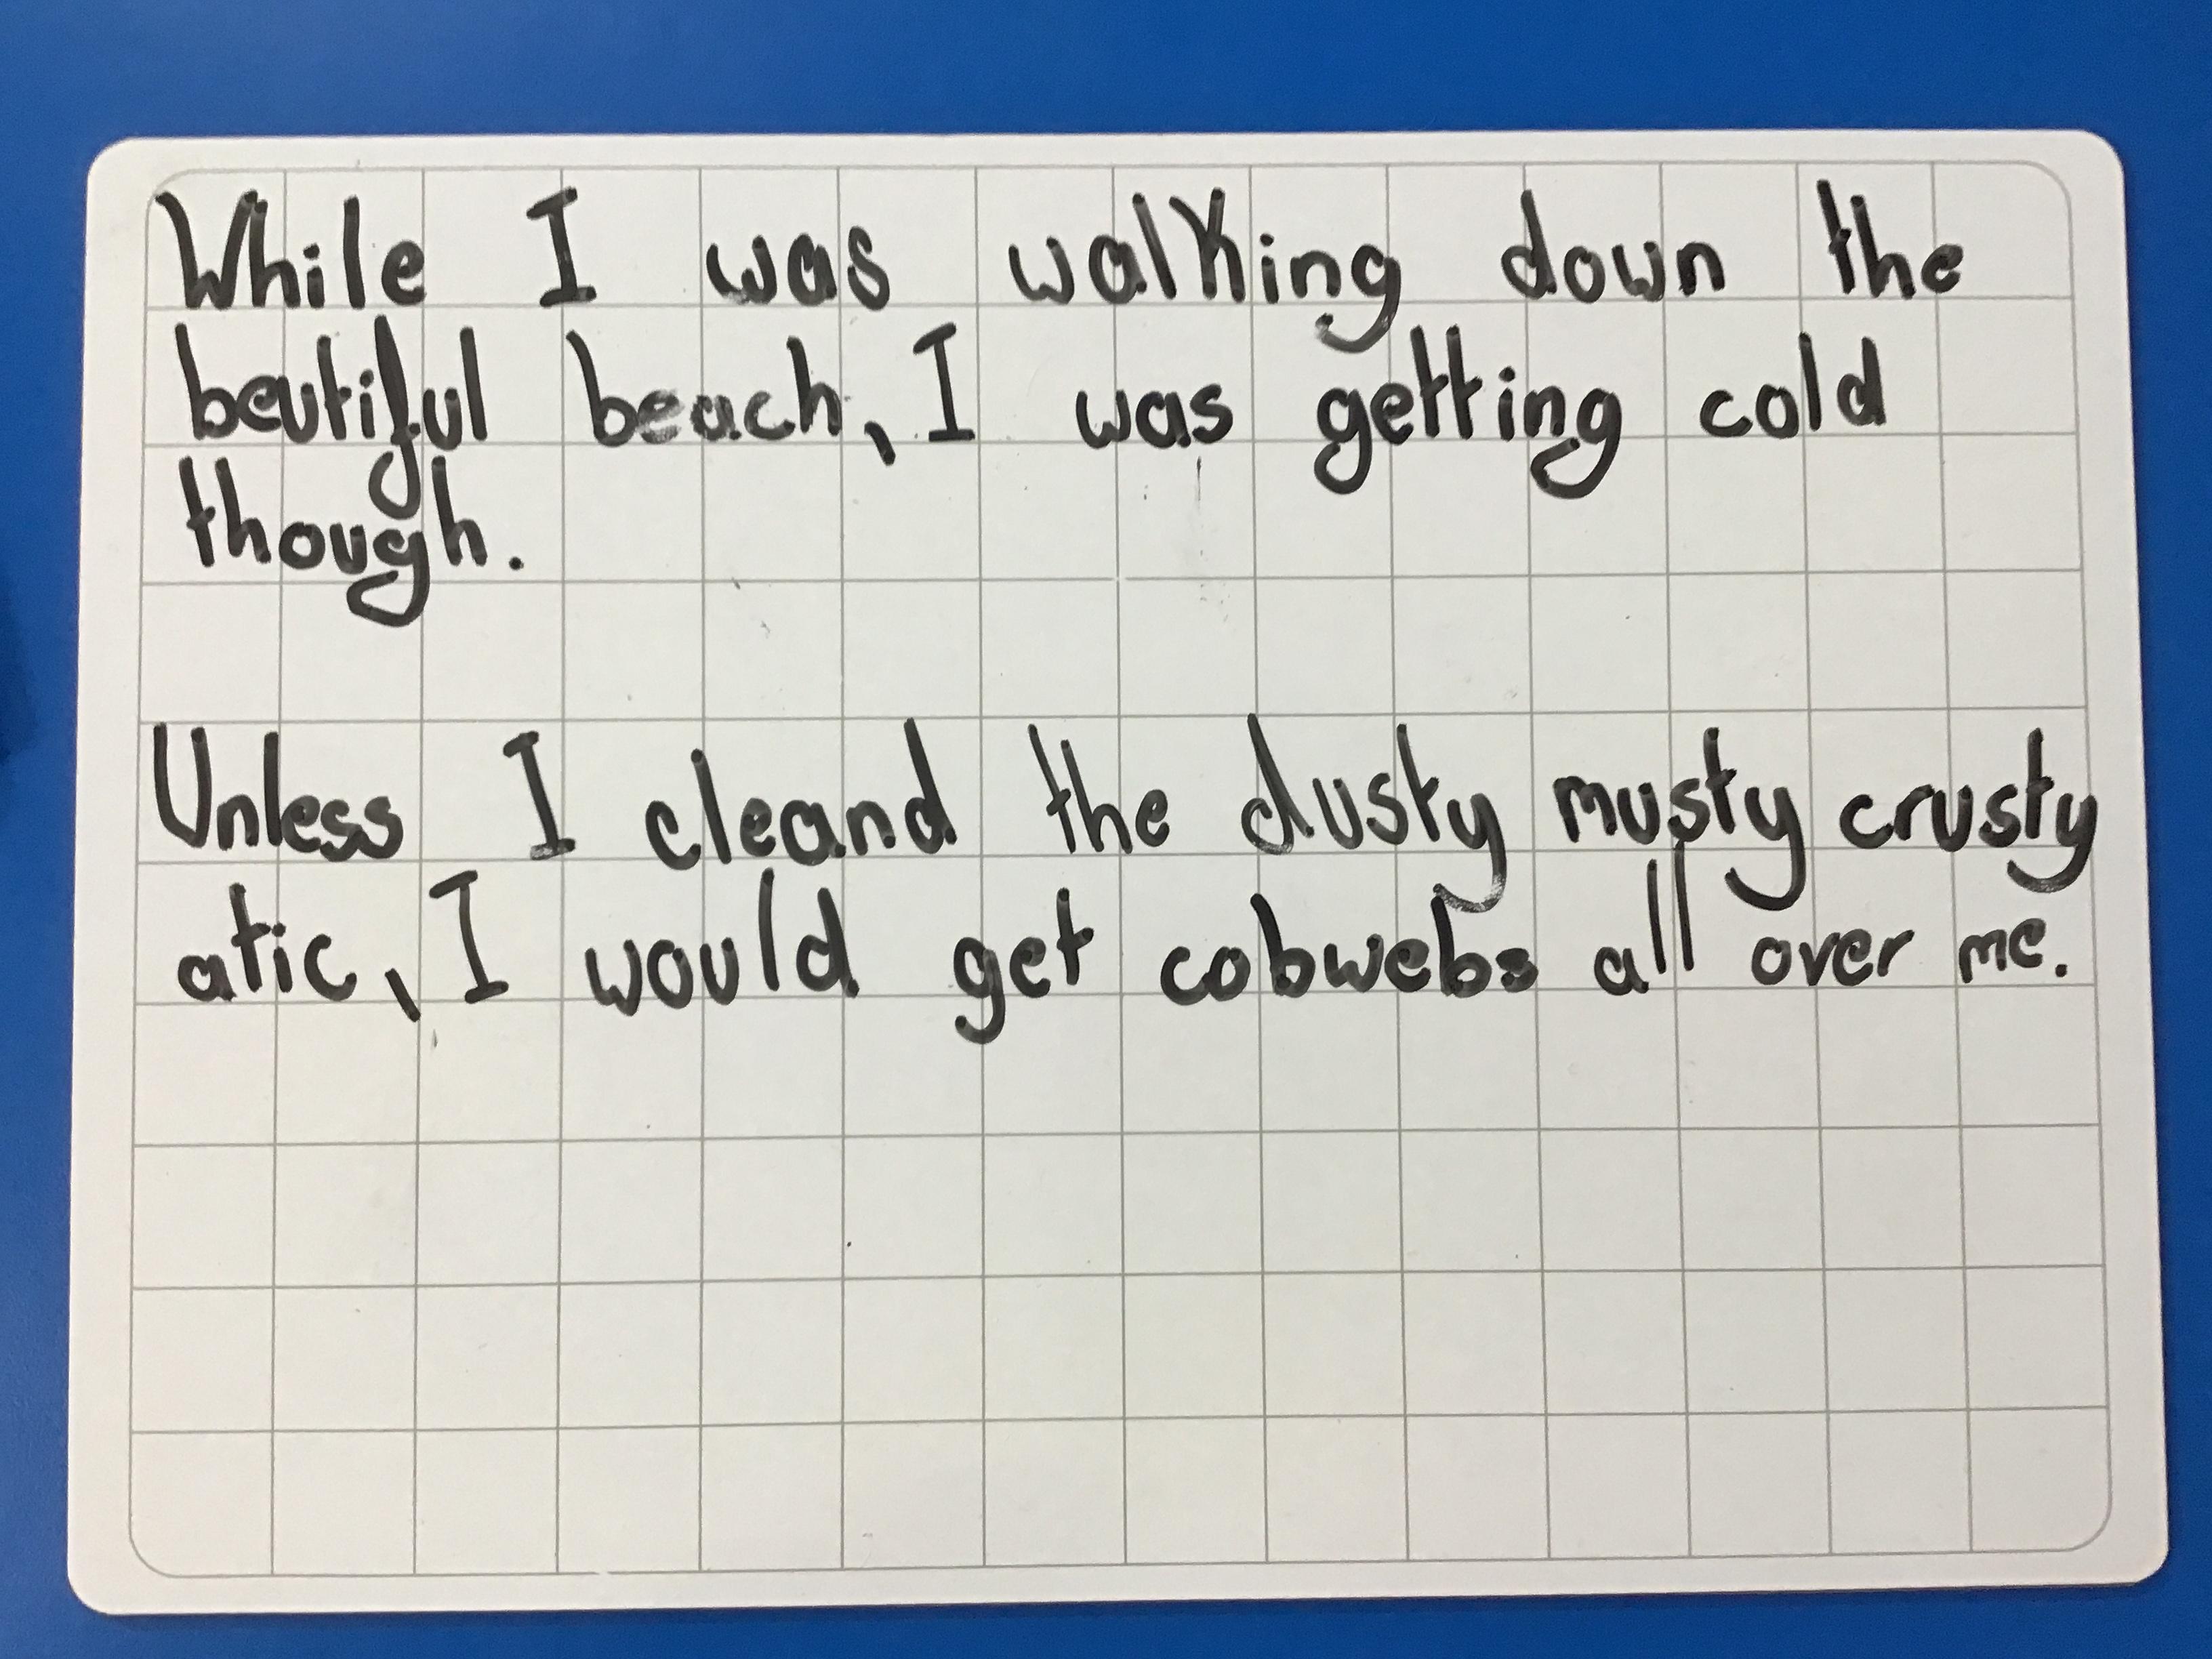 While I was walking down the
beutiful beach, I was getting cold
though.
Unless I cleand the dusty musty crusty
atic, I would get cobwebs all over me.